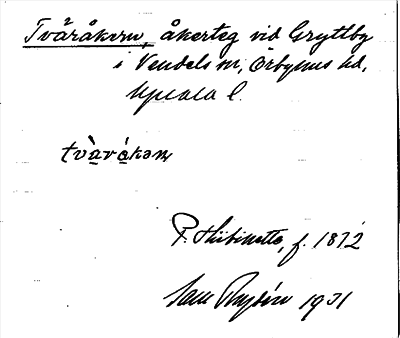 Tvåråkern, åkerteg vid Gryttby
i Vendels sn, Örbyhus hd,
Uppsala l.
tvàrákəm
P. Hübinette, f. 1872
Sam Rydén 1931